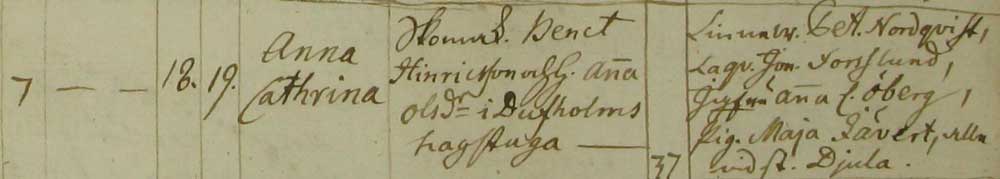 7 — — 18. 19. Anna Cathrina
Skomak. Benct
Hinricsson och H. Anna
olsdr i Dufholms
hagstuga —
37
Linnew. C. A. Nordqvist,
Lagv. Jon. Forslund,
Jgfrun Anna C. Öberg,
Pig. Maja Jävert, alla
vid st. Djula.